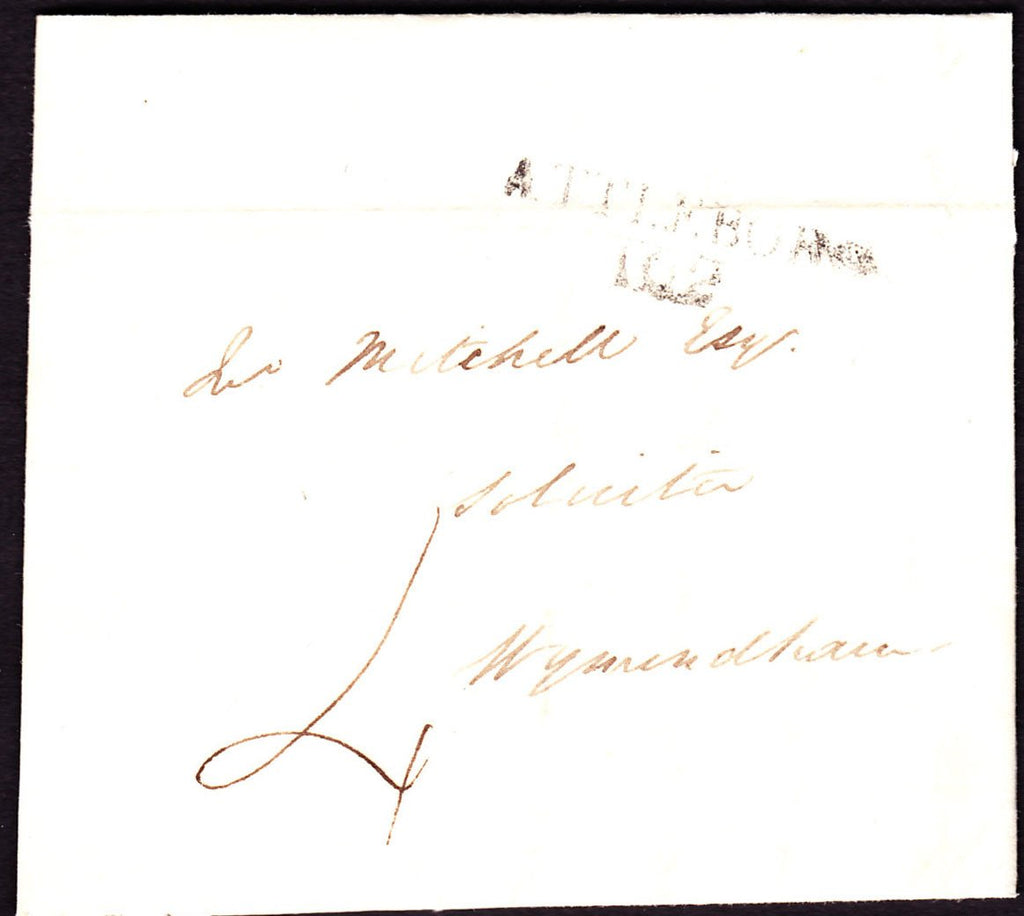 ATTLEBOROUGH
102
Mitchell Esq.
Solicitor
Wymondham
4